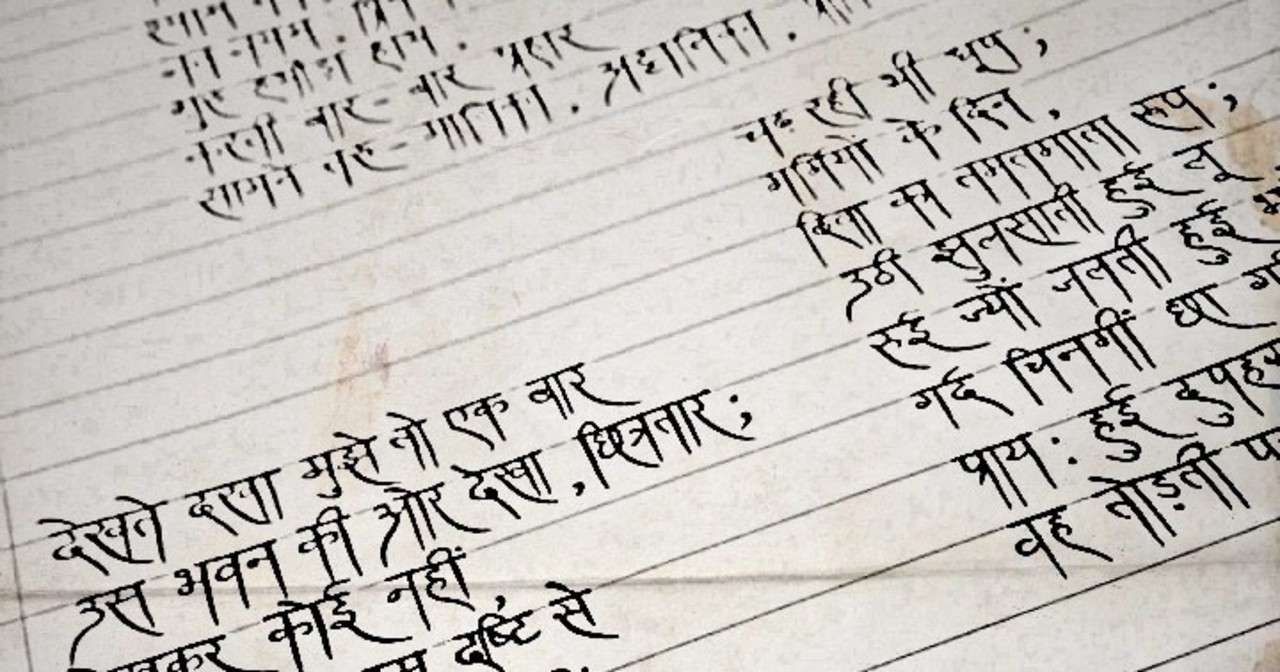 श्याम
नत नयन . प्रिय
गुरु हथौड़ा हाथ .
करती बार-बार प्रहार
सामने तरु-मालिका . अट्टालिका .
चढ़ रही थी धूप ;
गर्मियों के दिन .
दिवा का तमतमाता रूप ;
उठी झुलसाती हुई लू
रुई ज्यों जलती हुई
गर्द चिनगीं छा
प्राय : हुई
वह तोड़ती
देखते देखा मुझे तो एक बार
उस भवन की ओर देखा , छिन्नतार ;
कोई नहीं ,
दृष्टि से